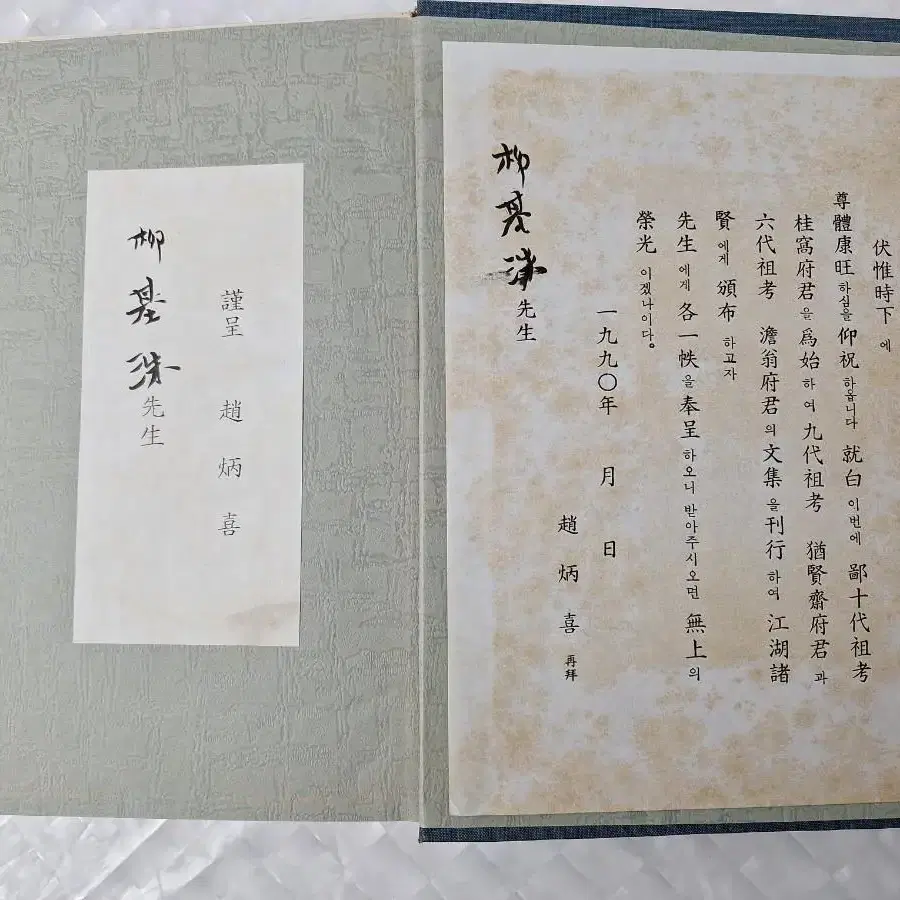 伏惟時下 에
尊體康旺 하심을 仰祝 하옵니다 就白 이번에 鄙十代祖考
桂窩府君 을 爲始 하여 九代祖考 猶賢齋府君 과
六代祖考 澹翁府君 의 文集 을 刊行 하여 江湖諸
賢 에게 頒布 하고자
先生 에게 各一帙 을 奉呈 하오니 받아주시오면 無上 의
榮光 이겠나이다。
一九九〇年 月 日
趙 炳 喜 再拜
柳基洙 先生
謹呈 趙 炳 喜
柳基洙 先生